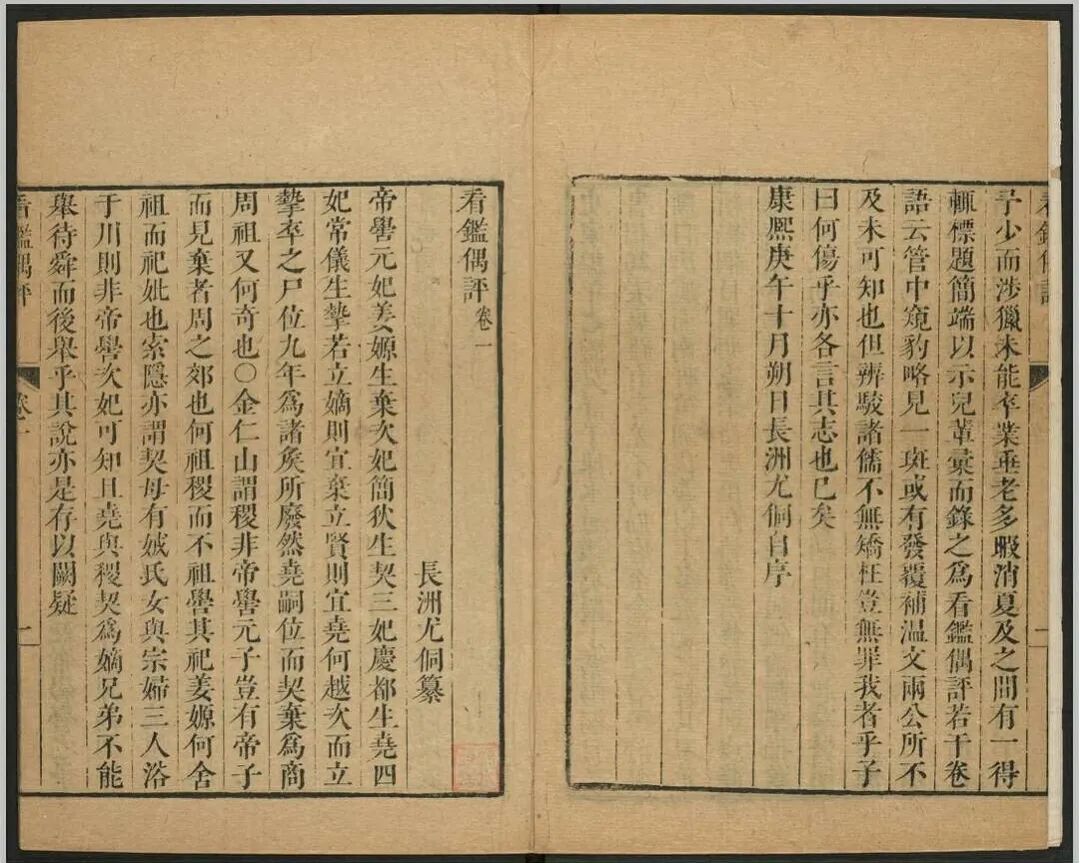 看鑑偶評
一
予少而涉獵未能卒業垂老多暇消夏及之間有一得
輒標題簡端以示兒輩彙而錄之為看鑑偶評若干卷
語云管中窺豹略見一斑或有發覆補温文兩公所不
及未可知也但辨駁諸儒不無矯枉豈無罪我者乎子
曰何傷乎亦各言其志也已矣
康熙庚午十月朔日長洲尤侗自序
看鑑偶評卷一
長洲尤侗纂
帝嚳元妃姜嫄生棄次妃簡狄生契三妃慶都生堯四
妃常儀生摯若立嫡則宜棄立賢則宜堯何越次而立
摯卒之尸位九年為諸矦所廢然堯嗣位而契棄為商
周祖又何奇也〇金仁山謂稷非帝嚳元子豈有帝子
而見棄者周之郊也何祖稷而不祖嚳其祀姜嫄何舍
祖而祀妣也索隱亦謂契母有娀氏女與宗婦三人浴
于川則非帝嚳次妃可知且堯與稷契為嫡兄弟不能
舉待舜而後舉乎其說亦是存以闕疑
看鑑偶評
卷一
一